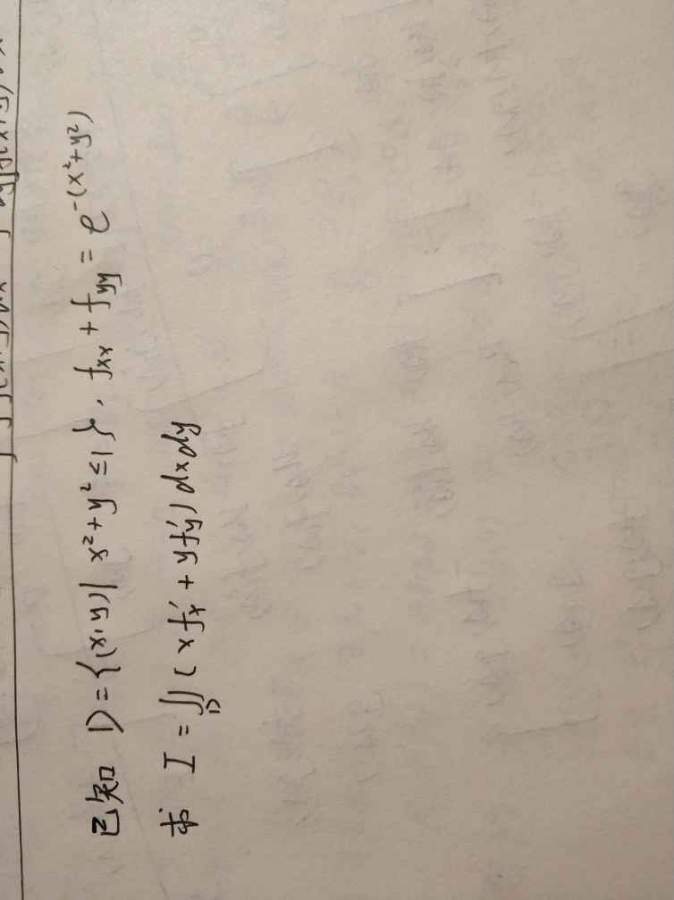 已知 D={(x,y)| x²+y²≤1}, fxx + fyy = e^-(x²+y²)
求 I = ∬_D ( x fx' + y fy' ) dxdy